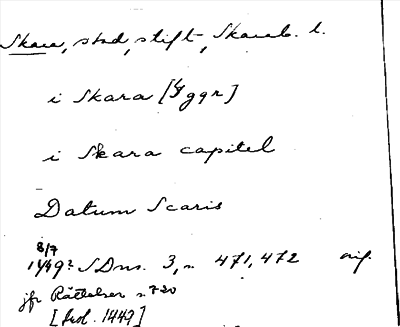 Skara, stad, stift, Skarab. l.
i Skara [4 ggr]
i Skara capitel
Datum Scaris
8/7
1449? SDns. 3, s. 471, 472 orig.
jfr Rättelser s. 720
[feol. 1449]